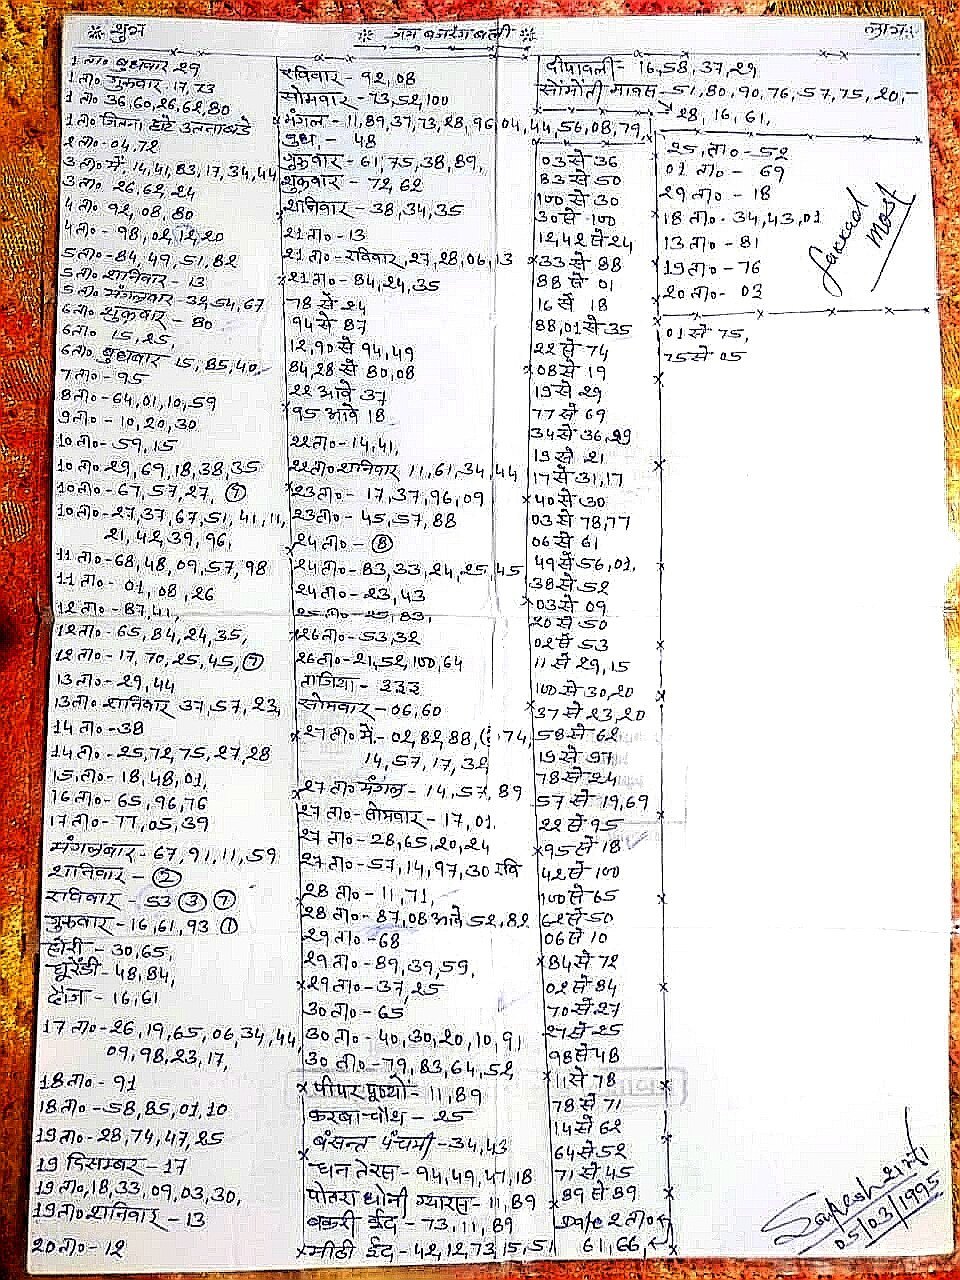 ※ शुभ
※ जय बजरंग बली ※
लाभ
1 ता० बुधवार 29
1 ता० शुक्रवार 17,73
1 ता० 36,60,26,62,80
1 ता० जितना हाटे उतना
2 ता०-04,72
3 ता० में, 14,41,83,17,34,44
3 ता० 26,62,24
4 ता० 92,08,80
4 ता०-98,02,12,20
5 ता०-84,49,51,82
5 ता० शनिवार-13
5 ता० मंगलवार-32,54,67
6 ता० शुक्रवार-80
6 ता० 15,25,
6 ता० बुधवार 15,85,40,
7 ता०-95
8 ता०-64,01,10,59
9 ता०-10,20,30
10 ता०-59,15
10 ता० 29,69,18,38,35
10 ता०-67,57,27, ⑦
10 ता०-27,37,67,51,41,11,
21,42,39,96,
11 ता०-68,48,09,57,98
11 ता०-01,08,26
12 ता०-87,41,
12 ता०-65,84,24,35,
12 ता०-17,70,25,45,⑦
13 ता०-29,44
13 ता० शनिवार 37,57,23,
14 ता०-38
14 ता०-25,72,75,27,28
15 ता०-18,48,01,
16 ता०-65,96,76
17 ता०-77,05,39
मंगलवार-67,91,11,59
शनिवार-②
रविवार-53 ③ ⑦
शुक्रवार-16,61,93 ①
होरी-30,65,
धूरेंडी-48,84,
दौज-16,61
17 ता०-26,19,65,06,34,44,
09,98,23,17,
18 ता०-91
18 ता०-58,85,01,10
19 ता०-28,74,47,25
19 दिसम्बर-17
19 ता०,18,33,09,03,30,
19 ता० शनिवार-13
20 ता०-12
रविवार-92,08
सोमवार-73,52,100
मंगल-11,89,37,73,28,96,04,44,56,08,79,
बुध-48
शुक्रवार-61,75,38,89,
शुक्रवार-72,62
शनिवार-38,34,35
21 ता०-13
21 ता०-रविवार,27,28,06,13
21 ता०-84,24,35
78 से 24
94 से 87
12,90 से 94,49
84,28 से 80,08
22 आवे 37
95 आवे 18
22 ता०-14,41,
22 ता० शनिवार 11,61,34,44
23 ता०-17,37,96,09
23 ता०-45,57,88
24 ता०-⑧
24 ता०-83,33,24,25,45
24 ता०-23,43
25 ता०-25,83,
26 ता०-53,32
26 ता०-21,52,100,64
ताजिया-333
सोमवार-06,60
27 ता० में-02,82,88, 74,
14,57,17,32
27 ता० मंगल-14,57,89
27 ता० सोमवार-17,01
27 ता०-28,65,20,24
27 ता०-57,14,97,30 रवि
28 ता०-11,71,
28 ता०-87,08 आवे 52,82
29 ता०-68
29 ता०-89,39,59,
29 ता०-37,25
30 ता०-65
30 ता०-40,30,20,10,91
30 ता०-79,83,64,52
पीपर पून्यो-11,89
करबा चौथ-25
बंसन्त पंचमी-34,43
धन तेरस-94,49,47,18
पोतरा धोनी ग्यारस-11,89
बकरी ईद-73,11,89
मीठी ईद-42,12,73,15,51
दीपावली-16,58,37,29
सोमोती मावस-51,80,90,76,57,75,20,-
28,16,61,
03 से 36
83 से 50
100 से 30
30 से 100
12,42 से 24
33 से 88
88 से 01
16 से 18
88,01 से 35
22 से 74
08 से 19
19 से 29
77 से 69
34 से 36,29
19 से 21
17 से 31,17
40 से 30
03 से 78,77
06 से 61
49 से 56,01,
38 से 52
03 से 09
20 से 50
02 से 53
11 से 29,15
100 से 30,20
37 से 23,20
58 से 62
19 से 97
78 से 24
57 से 19,69
22 से 95
95 से 18
42 से 100
100 से 65
62 से 50
06 से 10
84 से 72
02 से 84
70 से 27
27 से 25
98 से 48
11 से 78
78 से 71
14 से 62
64 से 52
71 से 45
89 से 89
Date 2 ता०
61,66,
25, ता०-52
01 ता०-69
29 ता०-18
18 ता०-34,43,01
13 ता०-81
19 ता०-76
20 ता०-03
01 से 75,
75 से 05
most
05/03/1995